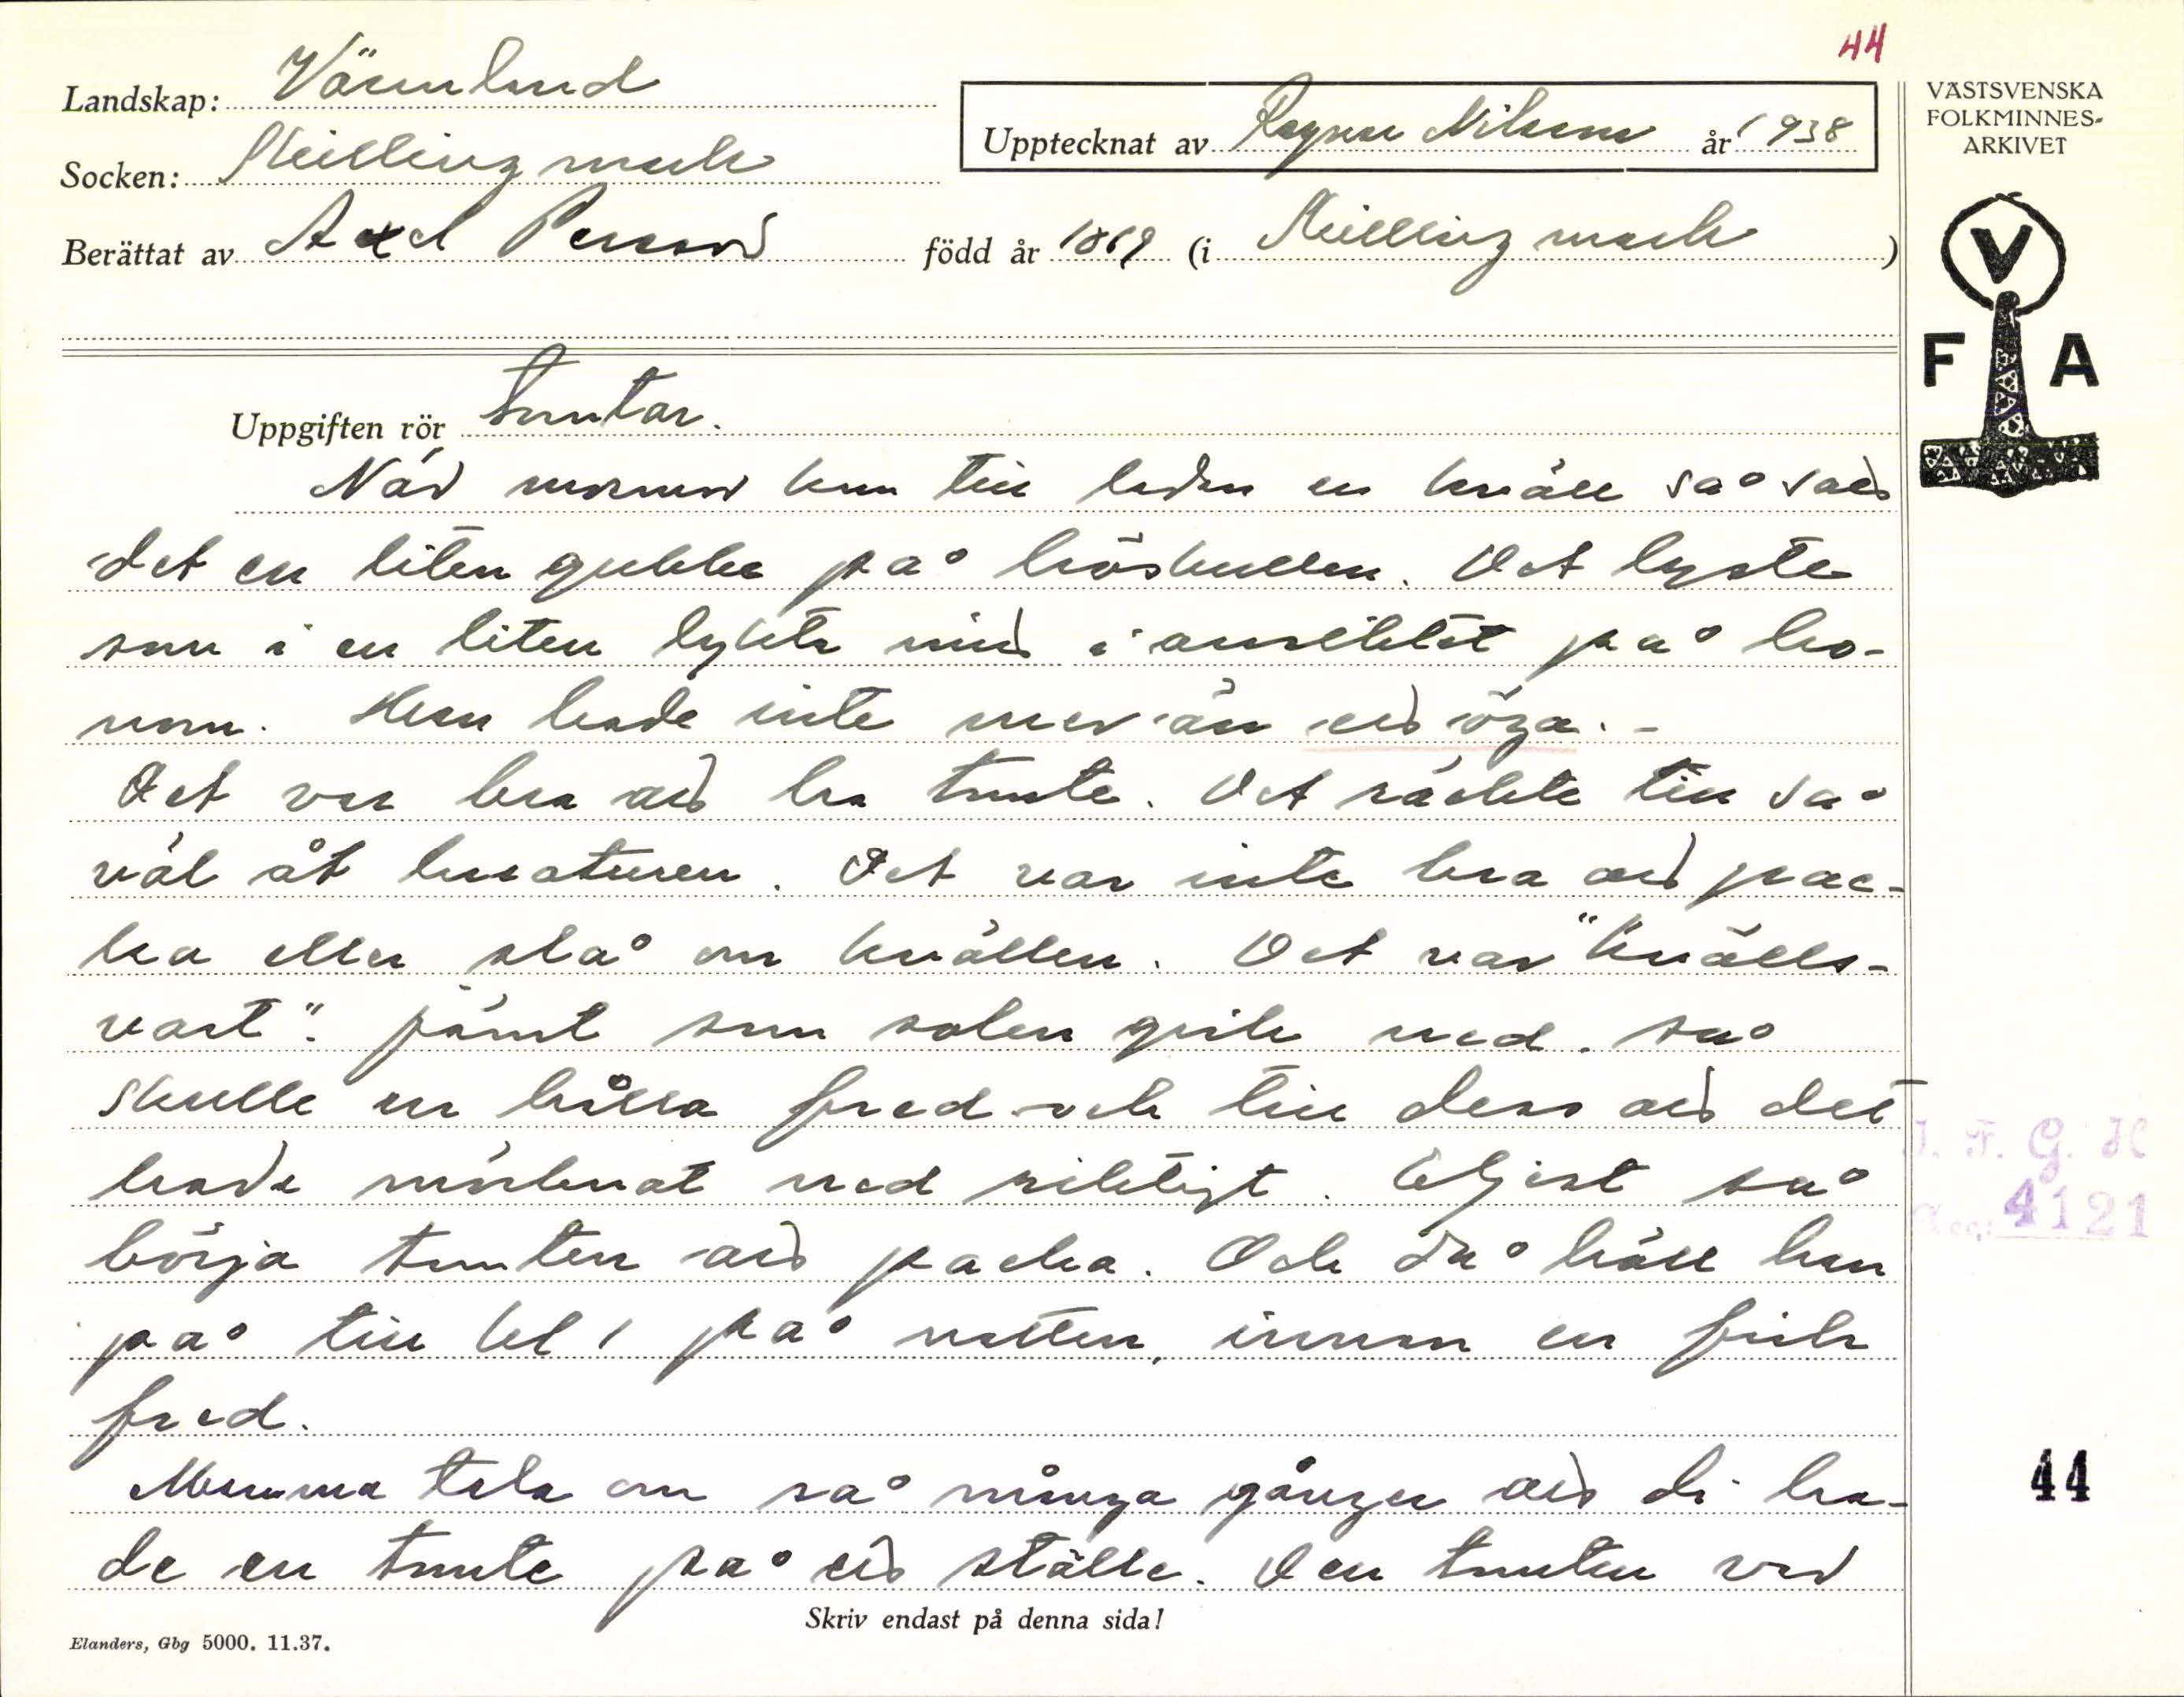 44
Landskap: Värmland
Socken: Skillingmark
Upptecknat av Ragnar Nilsson år 1938
Berättat av Axel Persson född år 1869 (i Skillingmark)
VÄSTSVENSKA
FOLKMINNES-
ARKIVET
V
F A
Uppgiften rör tomtar.
När mormor kom till ladan en kväll så satt
det en liten gubbe på höskullen. Det lyste
som i en liten lykta mitt i ansiktet på ho-
nom. Han hade inte mer än ett öga. -
Det var bra att ha tomte. Det räckte till så
väl åt kreaturen. Det var inte bra att pac-
ka eller slå om kvällen. Det var "kvälls-
vart". Jämt som solen gick ned. så
skulle en hålla fred och till dess att det
hade mörknat ned riktigt. Eljest så
börja tomten att packa. Och då höll han
på till kl 1 på natten, innan en fick
fred.
Mamma tala om så många gånger att di ha-
de en tomte på ett ställe. Den tomten var
Skriv endast på denna sida!
Elanders, Gbg 5000. 11.37.
I. F. G. H
Acc: 4121
44